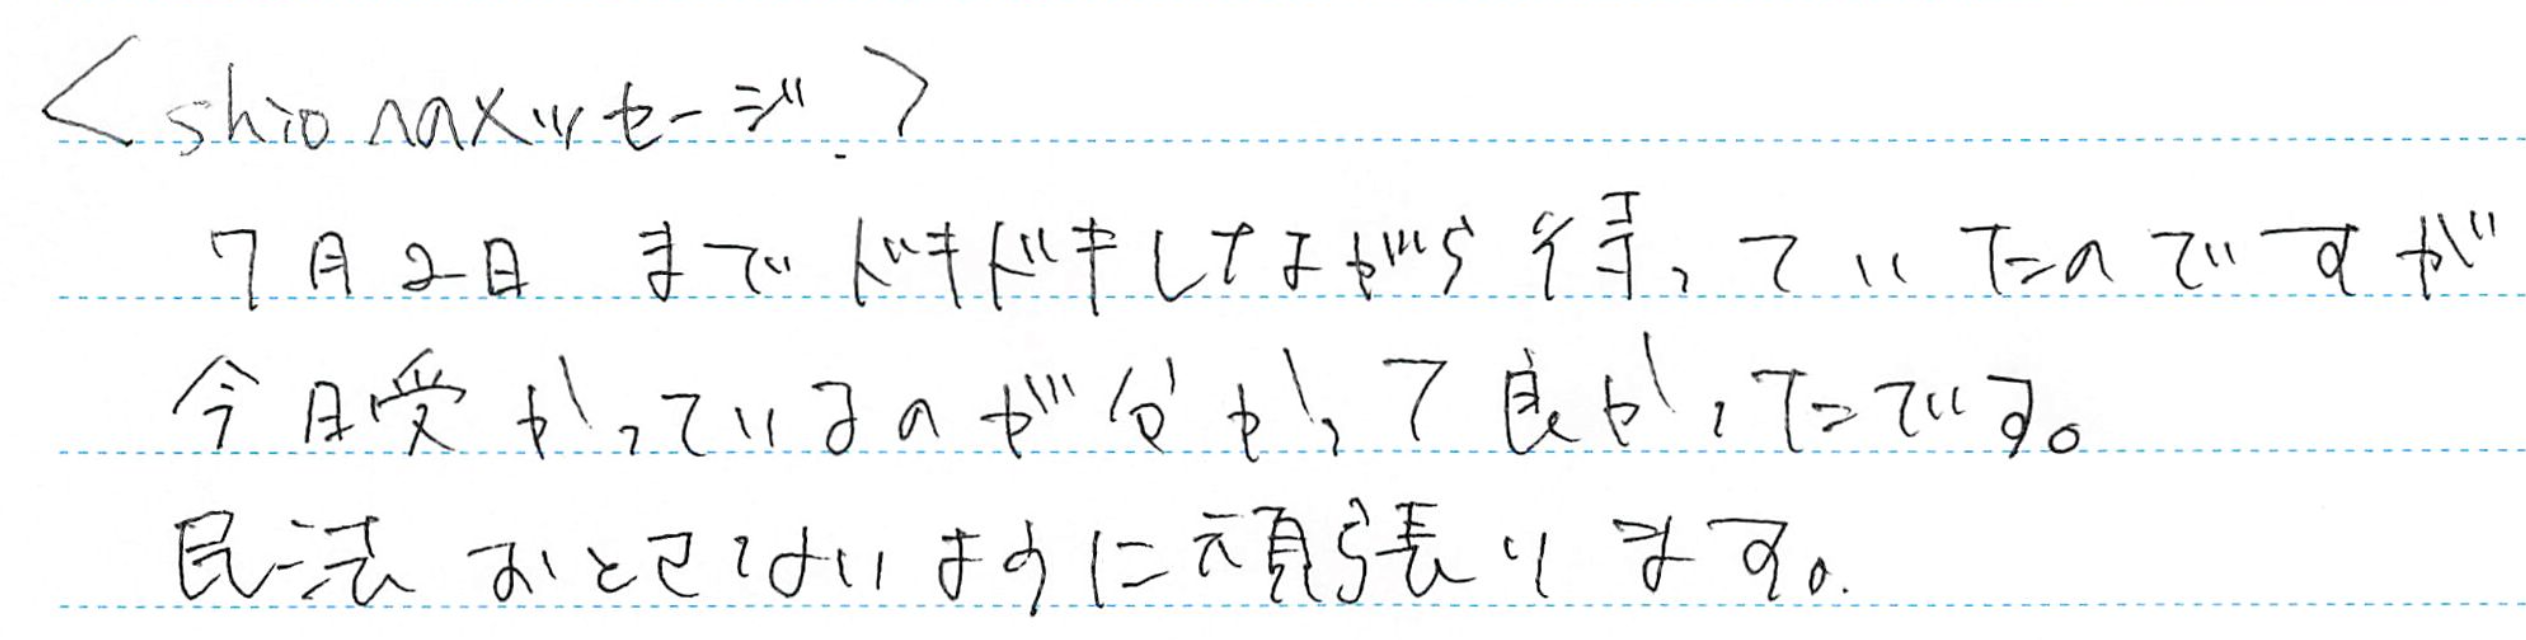 <shioへのメッセージ>
7月2日 までドキドキしながら待っていたのですが
今日受かっているのが分かって良かったです。
民法おとさないように頑張ります。